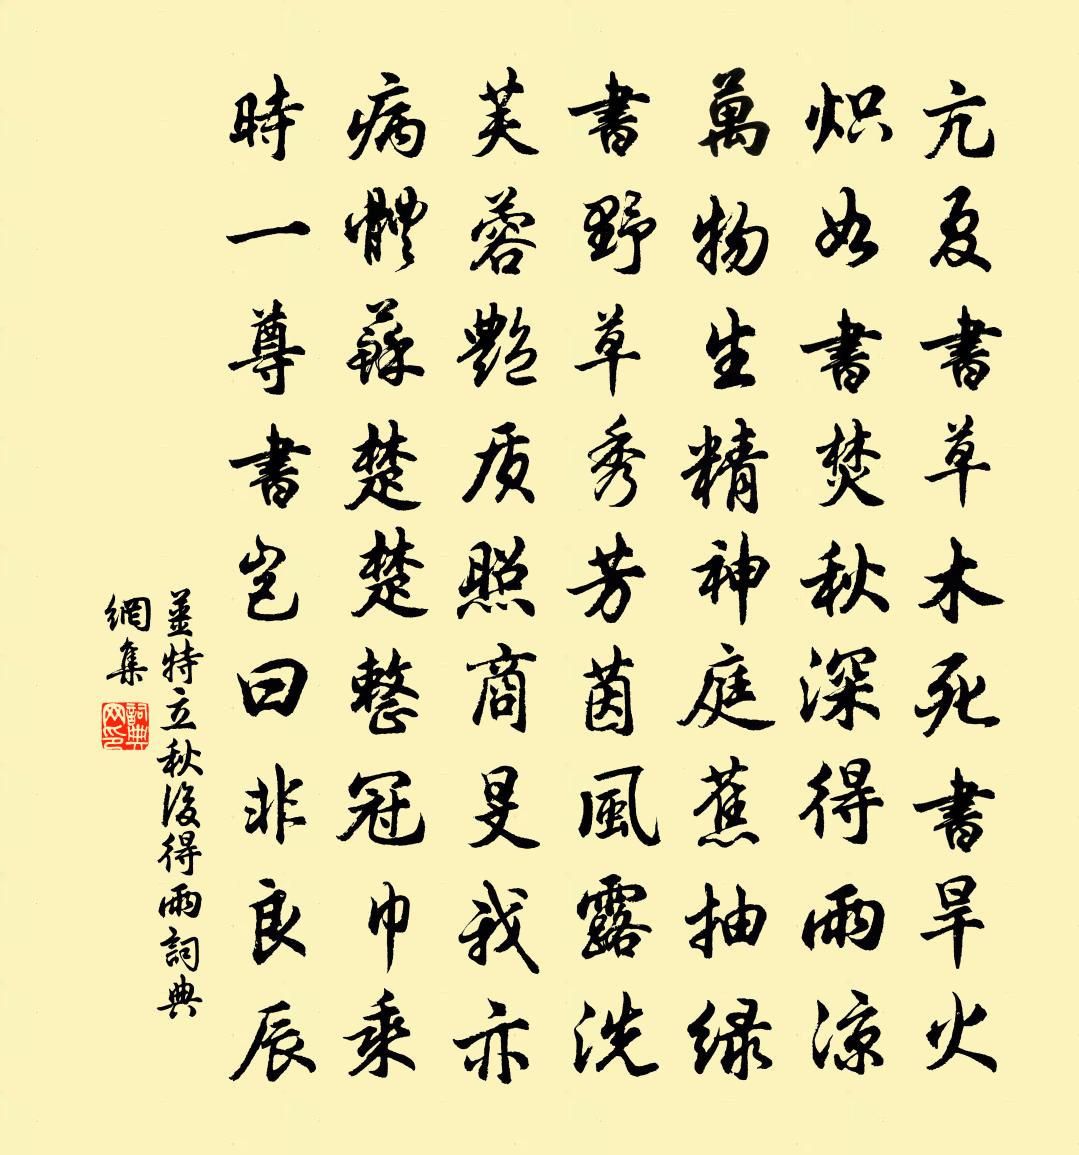 亢夏書草木死書旱火
炽如書焚秋深得雨凉
萬物生精神庭蕉抽绿
書野草秀芳茵風露洗
芙蓉艷质照商旻我亦
病體蘇楚楚整冠巾乘
時一尊書岂曰非良辰
薑特立秋後得雨詞典
網集
詞典网印